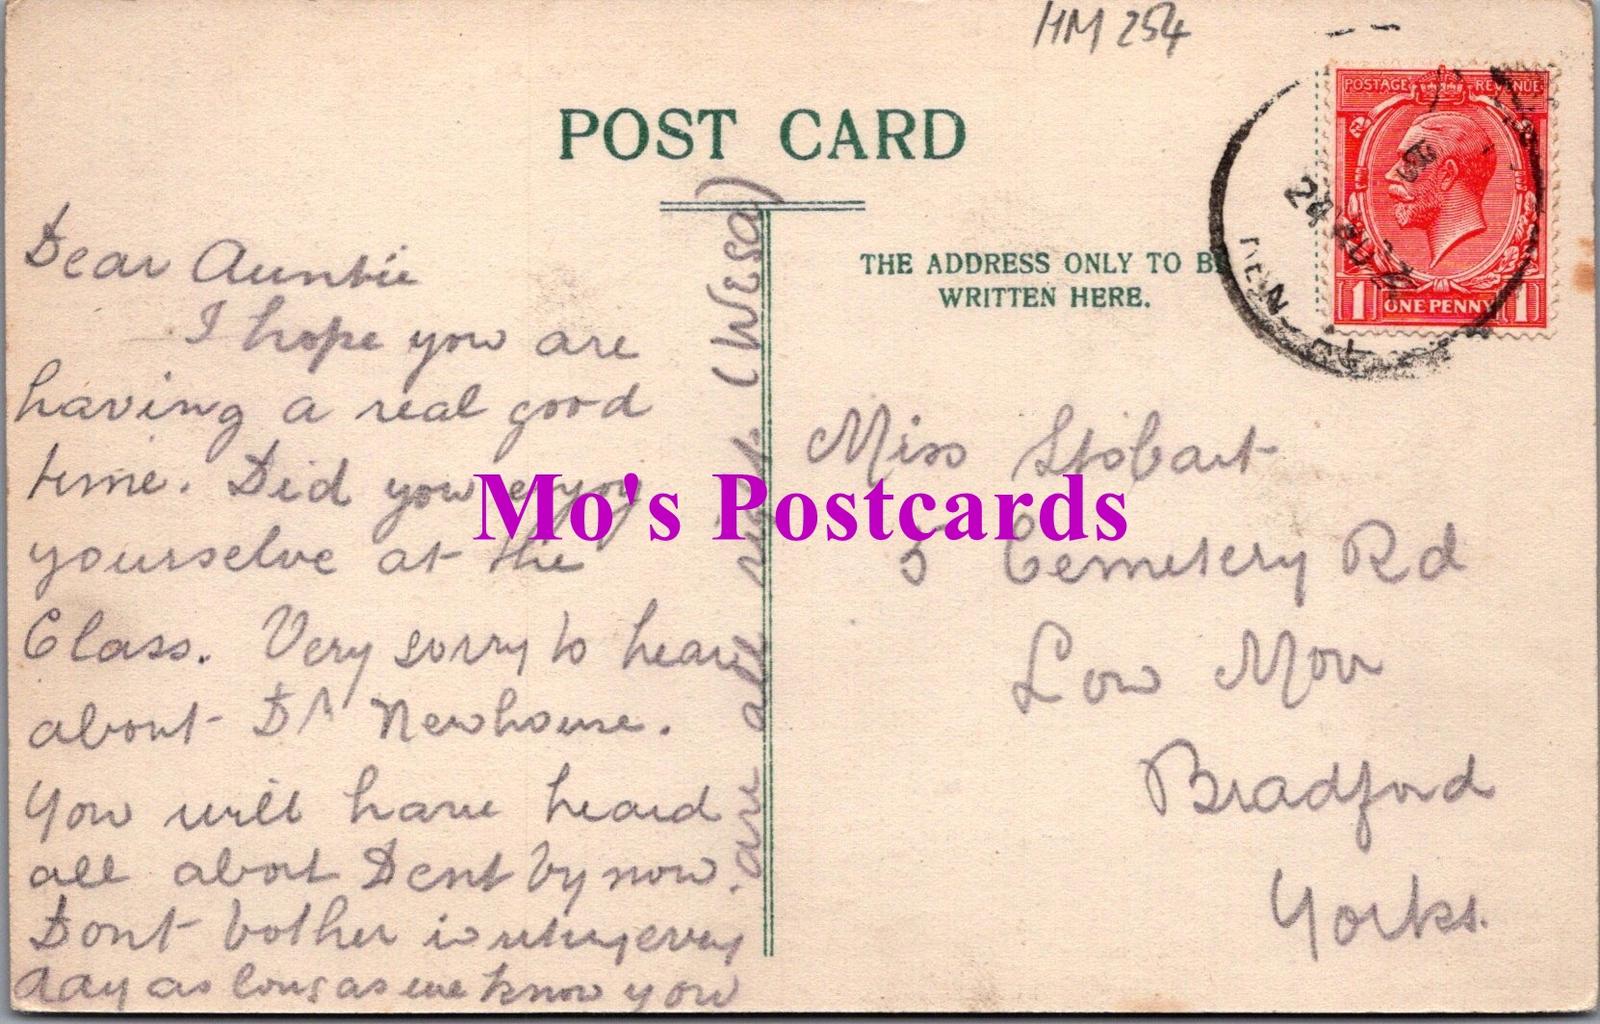 HM 254
POST CARD
THE ADDRESS ONLY TO BE
WRITTEN HERE.
POSTAGE REVENUE
1 ONE PENNY 1
Dear Auntie
I hope you are
having a real good
time. Did you enjoy
yourselve at the
Class. Very sorry to hear
about Dr Newhouse.
You will have heard
all about Dent by now.
Dont bother writing every
day as long as we know you
are all right. (Wesa)
Miss Stobart
5 Cemetery Rd
Low Moor
Bradford
Yorks.
Mo's Postcards